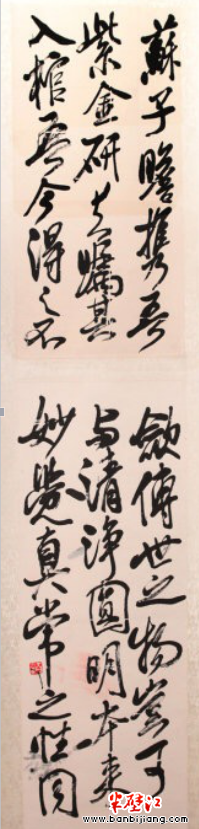 蘇子瞻攜吾
紫金研去囑其
入棺吾今得之不
歛傳世之物豈可
與清淨圓明本来
妙覺真常之性同
半壁江
www.banbijiang.com